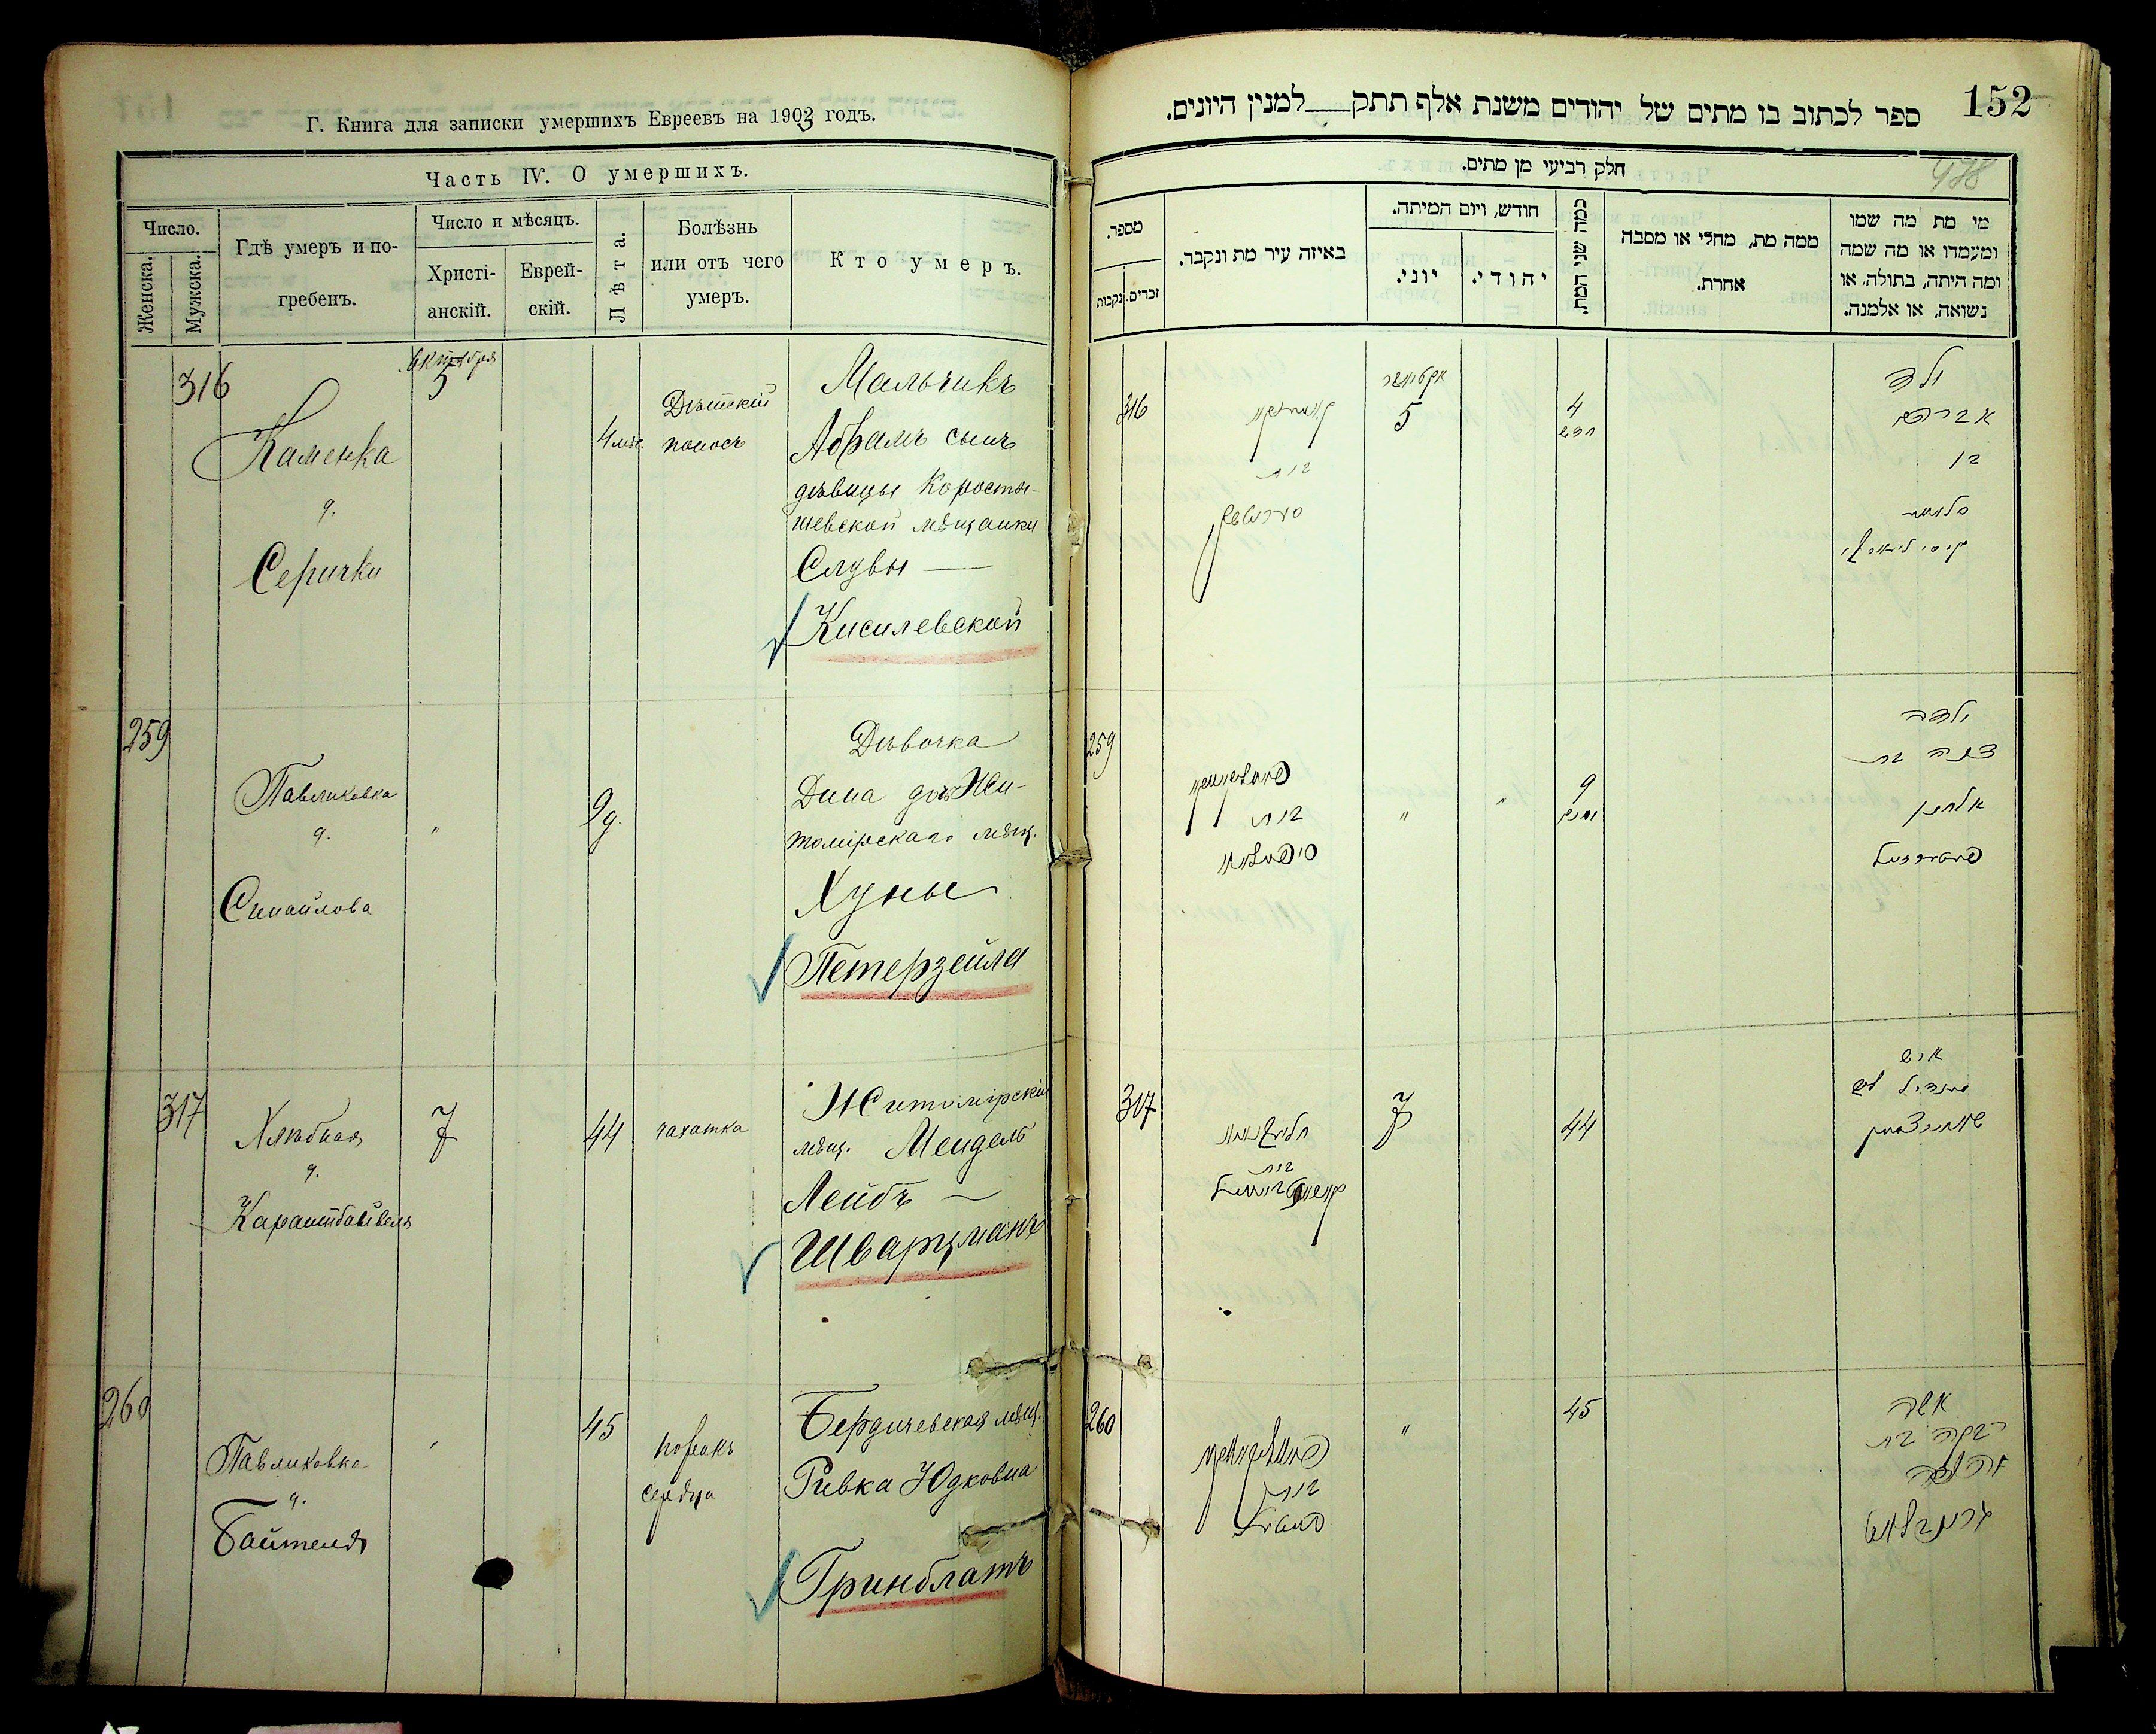 Г. Книга для записки умершихъ Евреевъ на 1903 годъ.
Часть IV. О умершихъ.
Число.
Женска.
Мужска.
Гдѣ умеръ и по-
гребенъ.
Число и мѣсяцъ.
Христі-
анскій.
Еврей-
скій.
Лѣта.
Болѣзнь
или отъ чего
умеръ.
Кто умеръ.
316
Каменка
д.
Серички
Октября
5
4 мѣс.
Дѣтскій
поносъ
Мальчикъ
Абрамъ сынъ
дѣвицы Коросты-
шевской мѣщанки
Слувы —
Кисилевской
259
Павликовка
д.
"
9 д.
Дѣвочка
Дина дочь Жи-
томірскаго мѣщ.
Хуны
Петерзейла
317
Хлѣбная
д.
7
44
чахотка
Житомірскій
мѣщ. Мендель
Лейбъ —
Шварцманъ
260
Павликовка
д.
Байтеля
"
45
порокъ
сердца
Бердичевская мѣщ.
Ривка Юдковна
Гринблатъ
152
ספר לכתוב בו מתים של יהודים משנת אלף תתק למנין היונים.
478
חלק רביעי מן מתים.
מספר.
נקבות
זכרים.
באיזה עיר מת ונקבר.
חודש, ויום המיתה.
יוני.
יהודי.
כמה שני המת.
ממה מת, מחלי או מסבה
אחרת.
מי מת מה שמו
ומעמדו או מה שמה
ומה היתה, בתולה, או
נשואה, או אלמנה.
316
בית
אקטיאבר
5
4
חדש
ילד
אברהם
בן
259
בית
"
"
9
ימים
ילדה
דינה בת
אלחנן
317
בית
7
44
איש
מענדיל ליב
שווארצמאן
260
בית
"
45
אשה
רבקה בת
יהודה
גרינבלאט